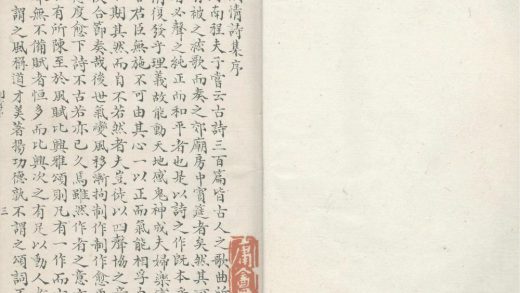 情詩集序
南程夫子嘗云古詩三百篇皆古人之歌曲
有被之弦歌而奏之郊廟房中賓筵者矣然其
者必聲之純正而和平者也是以詩之作既本
情復發乎理義故能動天地感鬼神成夫婦樂
君臣無施不可由其心一以正而氣能相孚
期其然而自不若然者夫豈徒以四聲協之
合節奏哉後世氣變風移漸拘制作制作愈
度愈下詩不古若亦已久焉雖然作者之意
有所陳至於風賦比興雅頌則凡有一作而
無不備賦者恒多而比興次之有足以動人
謂之風稱道才美著揚功德孰不謂之頌詞
三